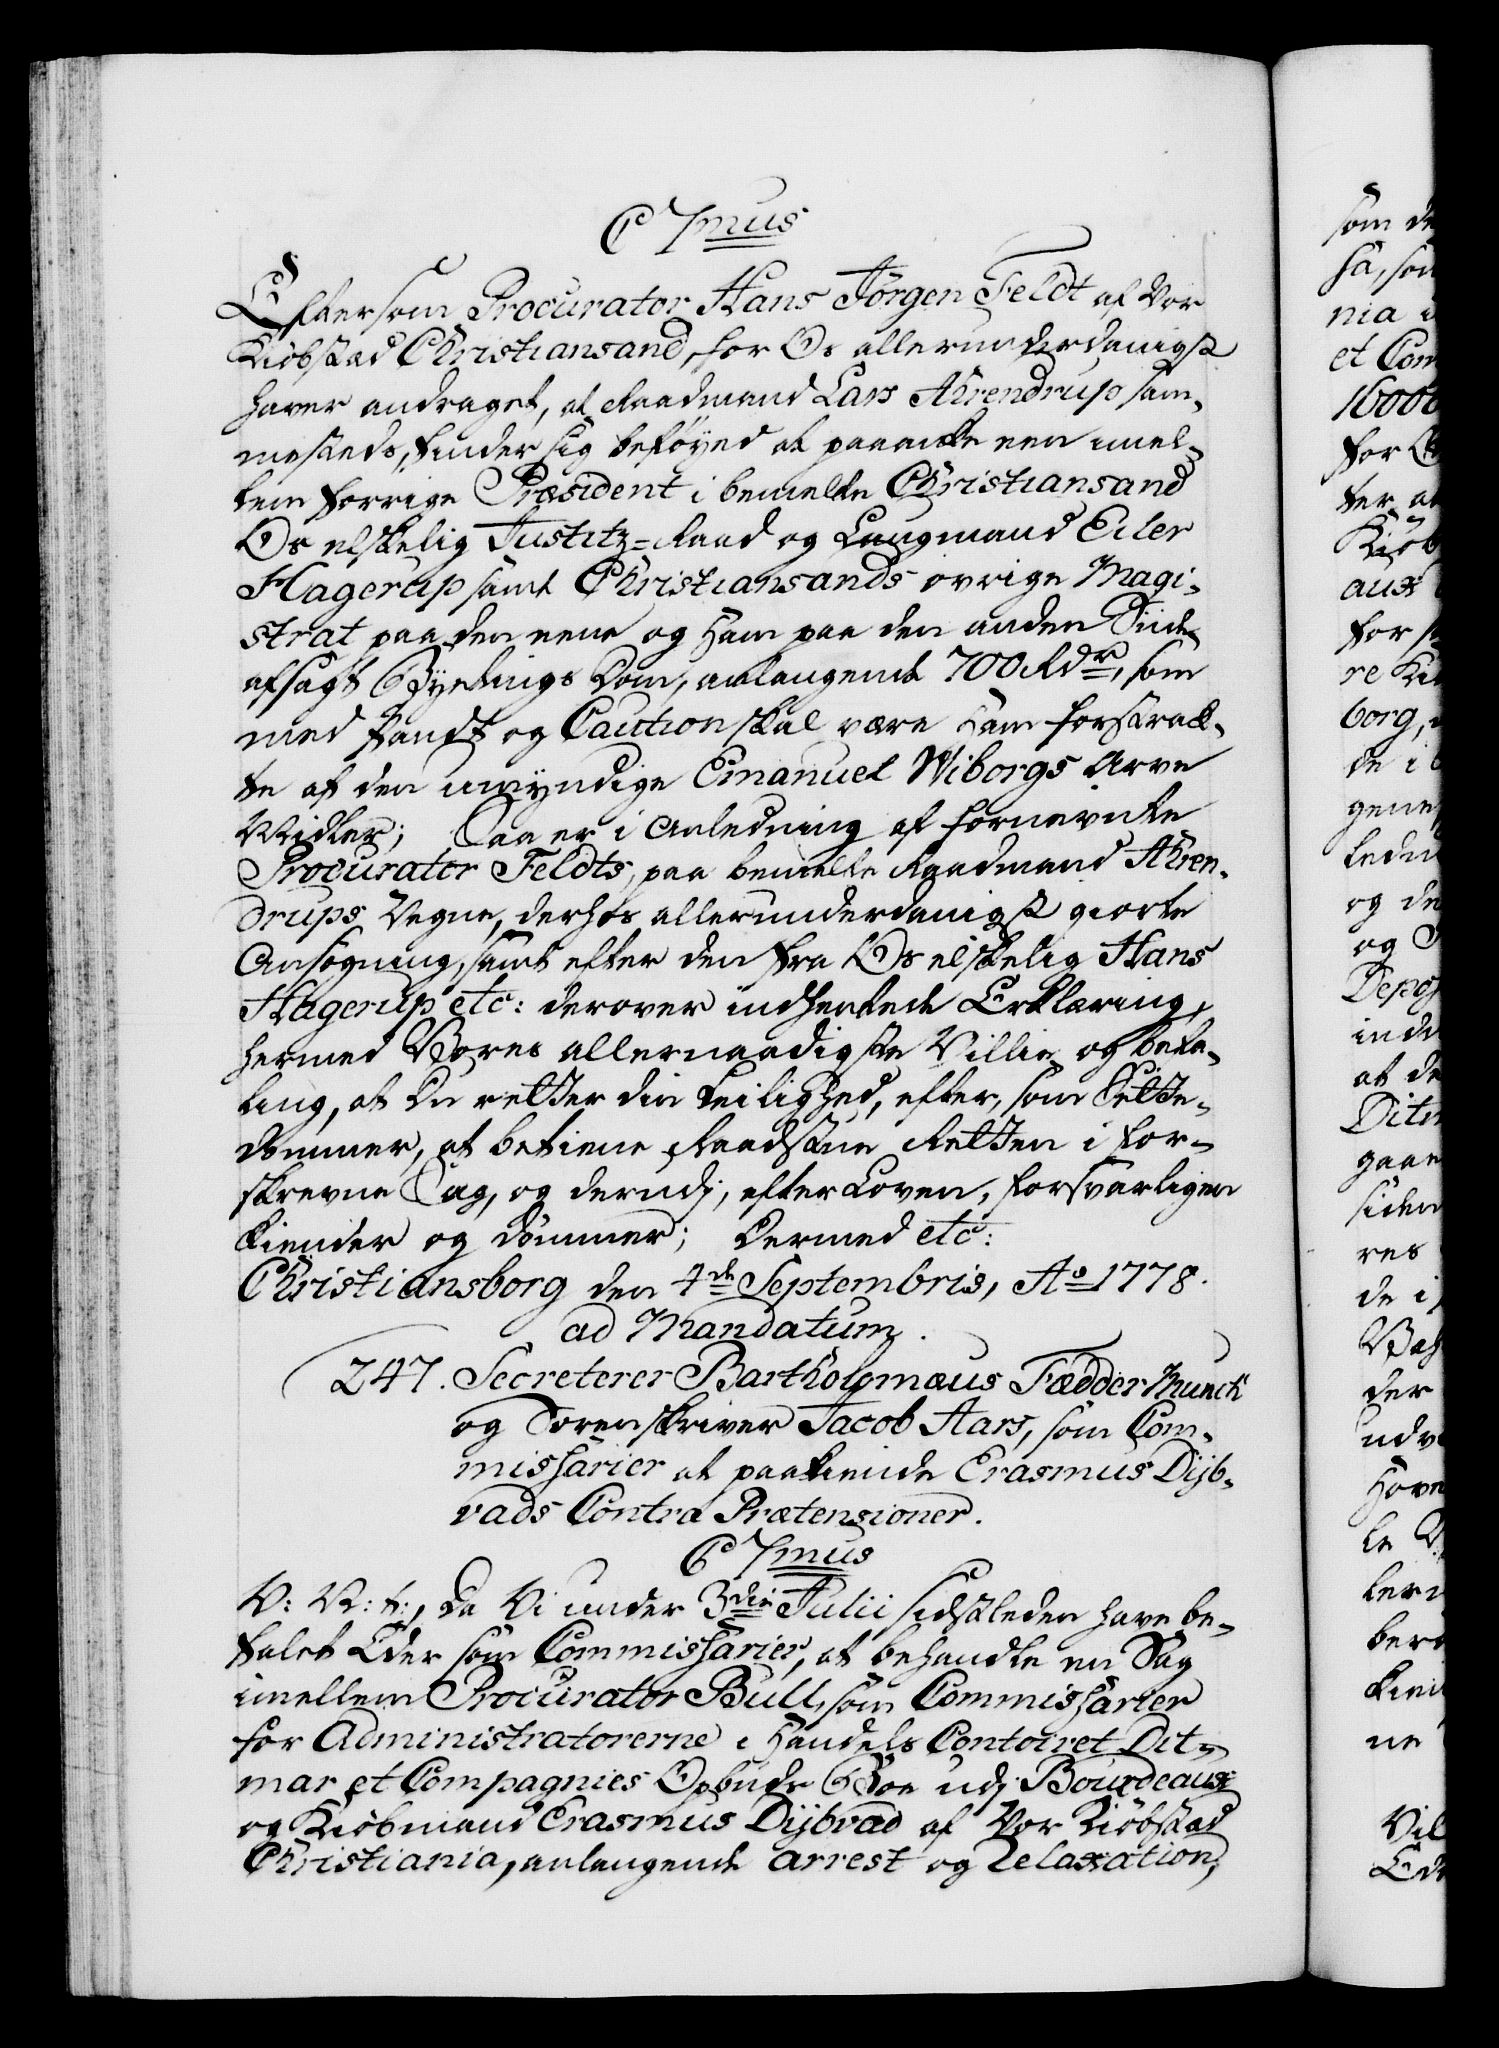 C 7mus
Eftersom Procurator Hans Jörgen Feldt af Vor
Kiøbstad Christiansand, for Os allerunderdanigst
haver andraget, at Raadmand Lars Ahrendrup sam,
mesteds, finder sig beføyed at paaanke een imel,
lem forrige Præsident i bemelte Christiansand
Os elskelig Justitz=Raad og Laugmand Eiler
Hagerup samt Christiansands övrige Magi,
strat paa den eene og Ham paa den anden Siide
afsagt Byetings Dom, anlangende 700 Rdr, som
med Pandt og Caution skal være Ham forstrak,
te af den umyndige Emanuel Wiborgs Arve
Midler; Saa er i Anledning af fornevnte
Procurator Feldts, paa bemelte Raadmand Ahren,
drups Vegne, derhos allerunderdanigst giorte
Ansögning, samt efter den fra Os elskelig Hans
Hagerup etc: derover indhentede Erklæring,
hermed Vores allernaadigste Villie og Befa,
ling, at Du retter din Leilighed, efter, som Sette,
dommer, at betiene Raadstue Retten i for,
skrevne Sag, og derudj, efter Loven, forsvarligen
kiender og dömmer; Dermed etc:
Christiansborg den 4de Septembris, Ao 1778.
ad Mandatum.
247. Secreterer Bartholomæus Fædder Munck
og Sorenskriver Jacob Aars, som Com,
missarier at paakiende Erasmus Dijb,
vads Contra Prætensioner.
C 7mus
V: V: t:, Da Vi under 3die Julii sidstleden have be,
falet Eder som Commissarier, at behandle en Sag
imellem Procurator Bull, som Commissarier
for Administratorerne i Handels Contoiret Dit,
mar et Compagnies Opbuds Boe udj Bourdeaux
og Kiøbmand Erasmus Dijbvad af Vor Kiøbstad
Christiania, anlangende arrest og Relaxation,